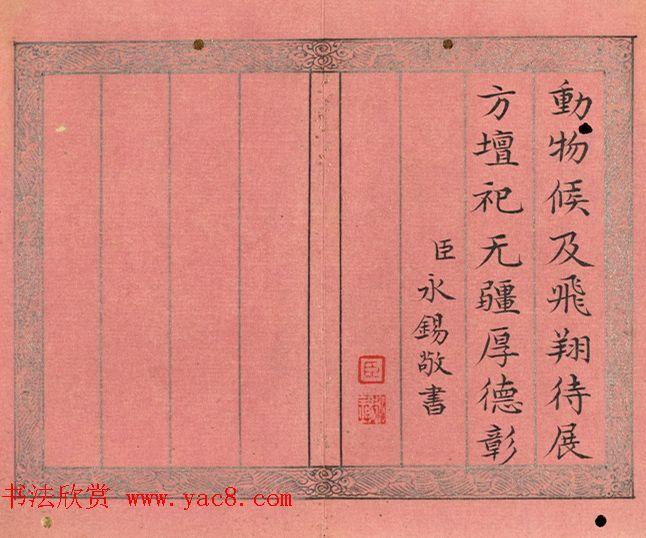 動物候及飛翔待展
方壇祀无疆厚德彰
臣永錫敬書
臣
书法欣赏 www.yac8.com